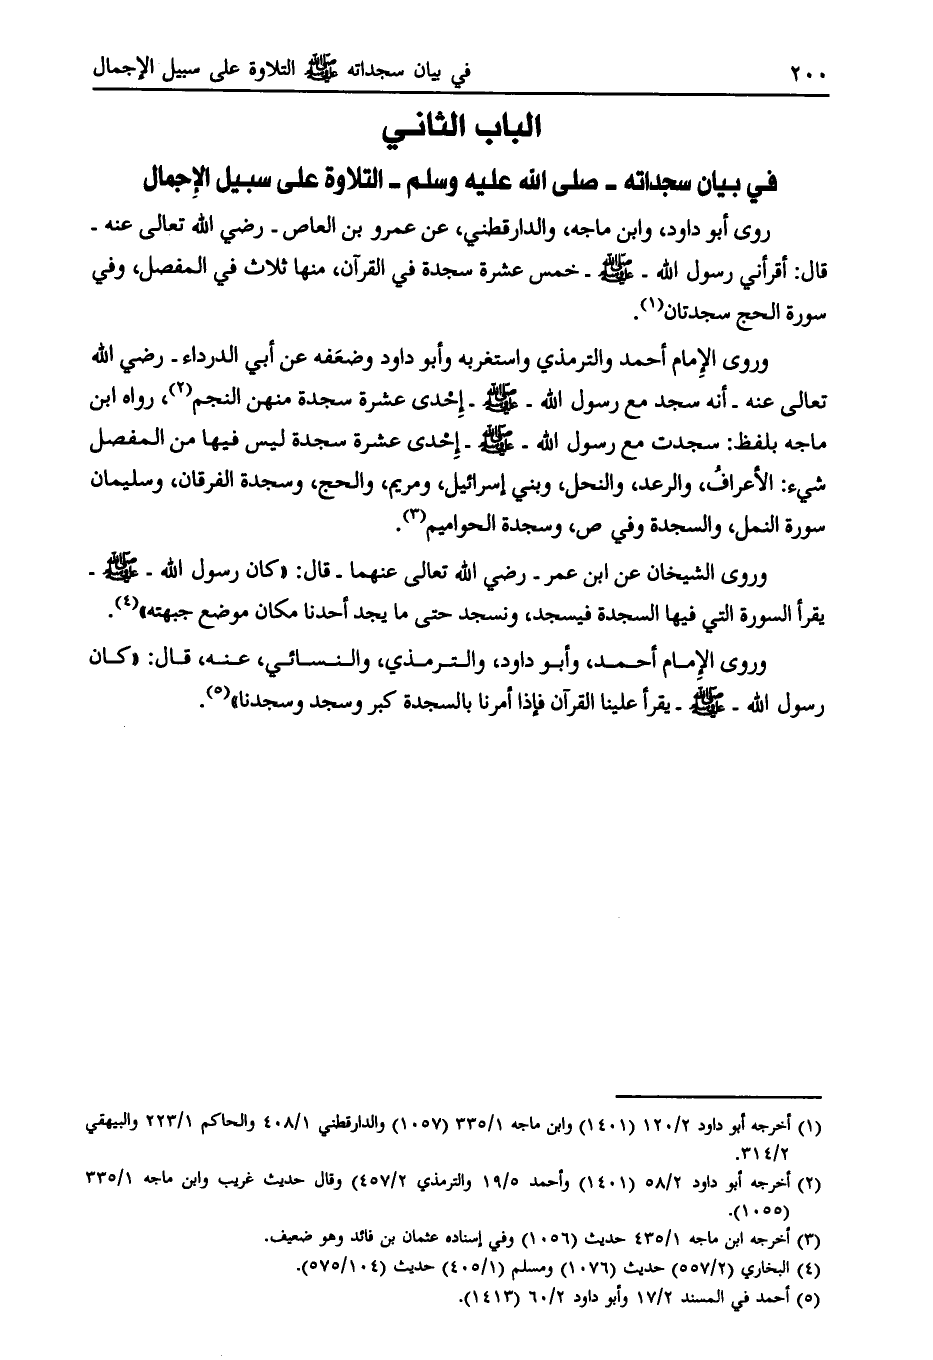 ٢٠٠ في بيان سجداته ﷺ التلاوة على سبيل الإجمال
الباب الثاني
في بيان سجداته ـ صلى الله عليه وسلم ـ التلاوة على سبيل الإجمال
روى أبو داود، وابن ماجه، والدارقطني، عن عمرو بن العاص ـ رضي الله تعالى عنه ـ
قال: أقرأني رسول الله ـ ﷺ ـ خمس عشرة سجدة في القرآن، منها ثلاث في المفصل، وفي
سورة الحج سجدتان(١).
وروى الإمام أحمد والترمذي واستغربه وأبو داود وضعَفه عن أبي الدرداء ـ رضي الله
تعالى عنه ـ أنه سجد مع رسول الله ـ ﷺ ـ إحْدى عشرة سجدة منهن النجم(٢)، رواه ابن
ماجه بلفظ: سجدت مع رسول الله ـ ﷺ ـ إحْدى عشرة سجدة ليس فيها من المفصل
شيء: الأعرافُ، والرعد، والنحل، وبني إسرائيل، ومريم، والحج، وسجدة الفرقان، وسليمان
سورة النمل، والسجدة وفي ص، وسجدة الحواميم(٣).
وروى الشيخان عن ابن عمر ـ رضي الله تعالى عنهما ـ قال: «كان رسول الله ـ ﷺ ـ
يقرأ السورة التي فيها السجدة فيسجد، ونسجد حتى ما يجد أحدنا مكان موضع جبهته»(٤).
وروى الإمام أحمد، وأبو داود، والترمذي، والنسائي، عنه، قال: «كان
رسول الله ـ ﷺ ـ يقرأ علينا القرآن فإذا أمرنا بالسجدة كبر وسجد وسجدنا»(٥).
(١) أخرجه أبو داود ١٢٠/٢ (١٤٠١) وابن ماجه ٣٣٥/١ (١٠٥٧) والدارقطني ٤٠٨/١ والحاكم ٢٢٣/١ والبيهقي
٣١٤/٢.
(٢) أخرجه أبو داود ٥٨/٢ (١٤٠١) وأحمد ١٩/٥ والترمذي ٤٥٧/٢) وقال حديث غريب وابن ماجه ٣٣٥/١
(١٠٥٥).
(٣) أخرجه ابن ماجه ٤٣٥/١ حديث (١٠٥٦) وفي إسناده عثمان بن فائد وهو ضعيف.
(٤) البخاري (٥٥٧/٢) حديث (١٠٧٦) ومسلم (٤٠٥/١) حديث (٥٧٥/١٠٤).
(٥) أحمد في المسند ١٧/٢ وأبو داود ٦٠/٢ (١٤١٣).